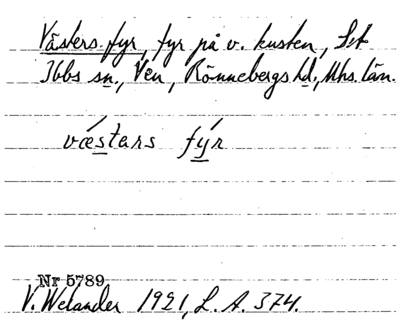 Västers fyr, fyr på v. kusten, S:t
Ibbs sn., Ven, Rönnebergs hd., Mhs. län.
vǽstars fýr
Nr 5789
V. Welander 1921, L. A. 374.